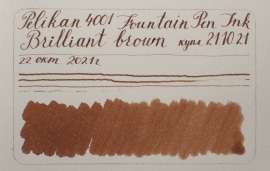 Pelikan 4001 Fountain Pen Ink
Brilliant brown купл 21.10.21
22 окт 2021г